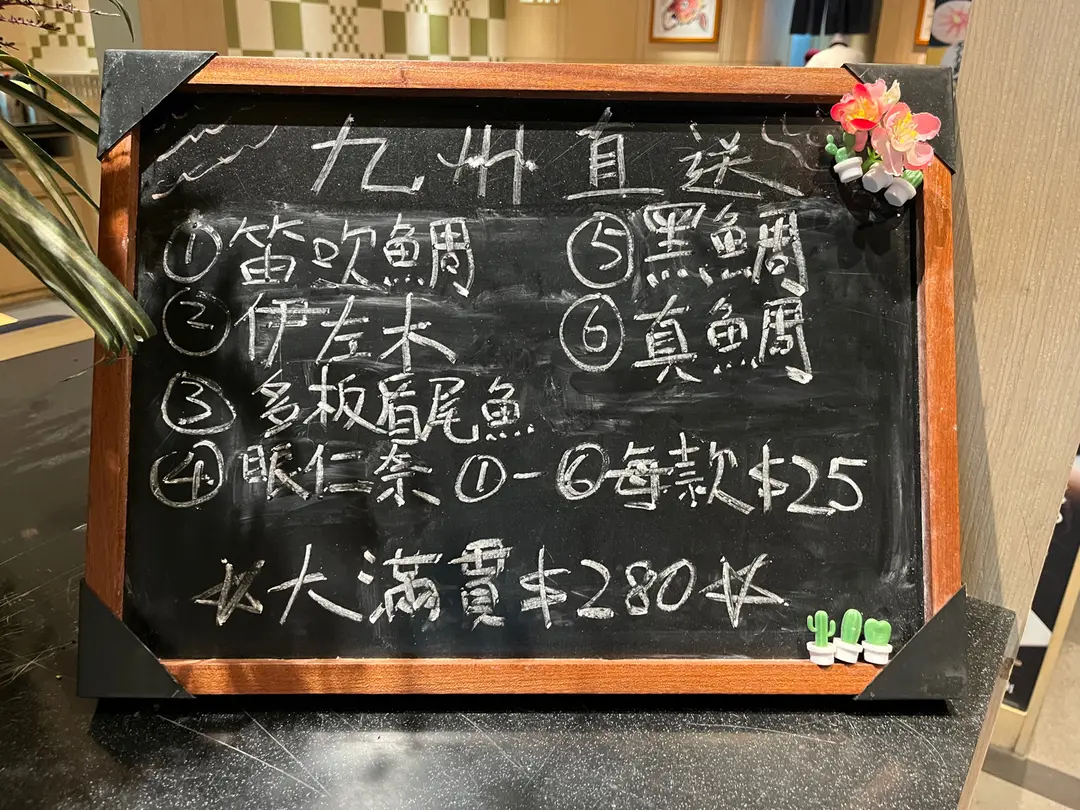 九州直送
① 笛吹鯛 ⑤ 黑鯛
② 伊左木 ⑥ 真鯛
③ 多板盾尾魚
④ 眼仁奈 ①-⑥每款$25
☆大滿貫$280☆